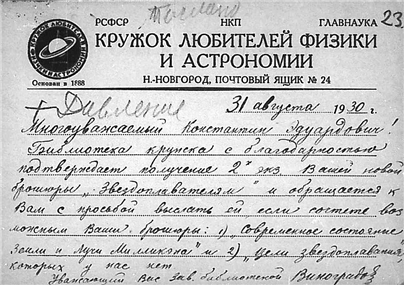 Послано
23
РСФСР НКП ГЛАВНАУКА
КРУЖОК ЛЮБИТЕЛЕЙ ФИЗИКИ
И АСТРОНОМИИ
Н.-НОВГОРОД, ПОЧТОВЫЙ ЯЩИК № 24
Основан в 1888
+ Давление
31 августа 1930 г.
Многоуважаемый Константин Эдуардович!
Библиотека кружка с благодарностью
подтверждает получение 2х экз Вашей новой
брошюры „Звездоплавателям" и обращается к
Вам с просьбой выслать ей если сочтете воз
можным Ваши брошюры: 1) „Современное состояние
Земли и Лучи Милликэна" и 2) „Цели звездоплавания",
которых у нас нет.
Уважающий Вас Зав. библиотекой Виноградов